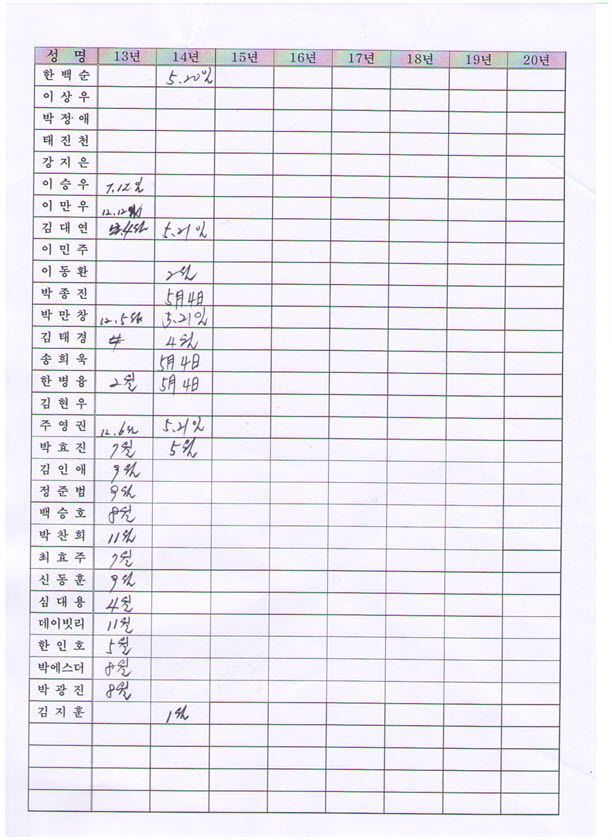 성 명 13년 14년 15년 16년 17년 18년 19년 20년
한 백 순 5.20일
이 상 우
박 정 애
태 진 천
강 지 은
이 승 우 7.12일
이 만 우
김 대 연 5.21일
이 민 주
이 동 환 2월
박 종 진 5月4日
박 만 창 12.5월 5.21일
김 태 경 4월
송 희 욱 5月4日
한 병 융 2월 5月4日
김 현 우
주 영 권 12.6월 5.21일
박 효 진 7월 5월
김 인 애 9월
정 준 범 9월
백 승 호 8월
박 찬 희 11월
최 효 주 7월
신 동 훈 9월
심 대 용 4월
데이빗리 11월
한 인 호 5월
박에스더 8월
박 광 진 8월
김 지 훈 1월